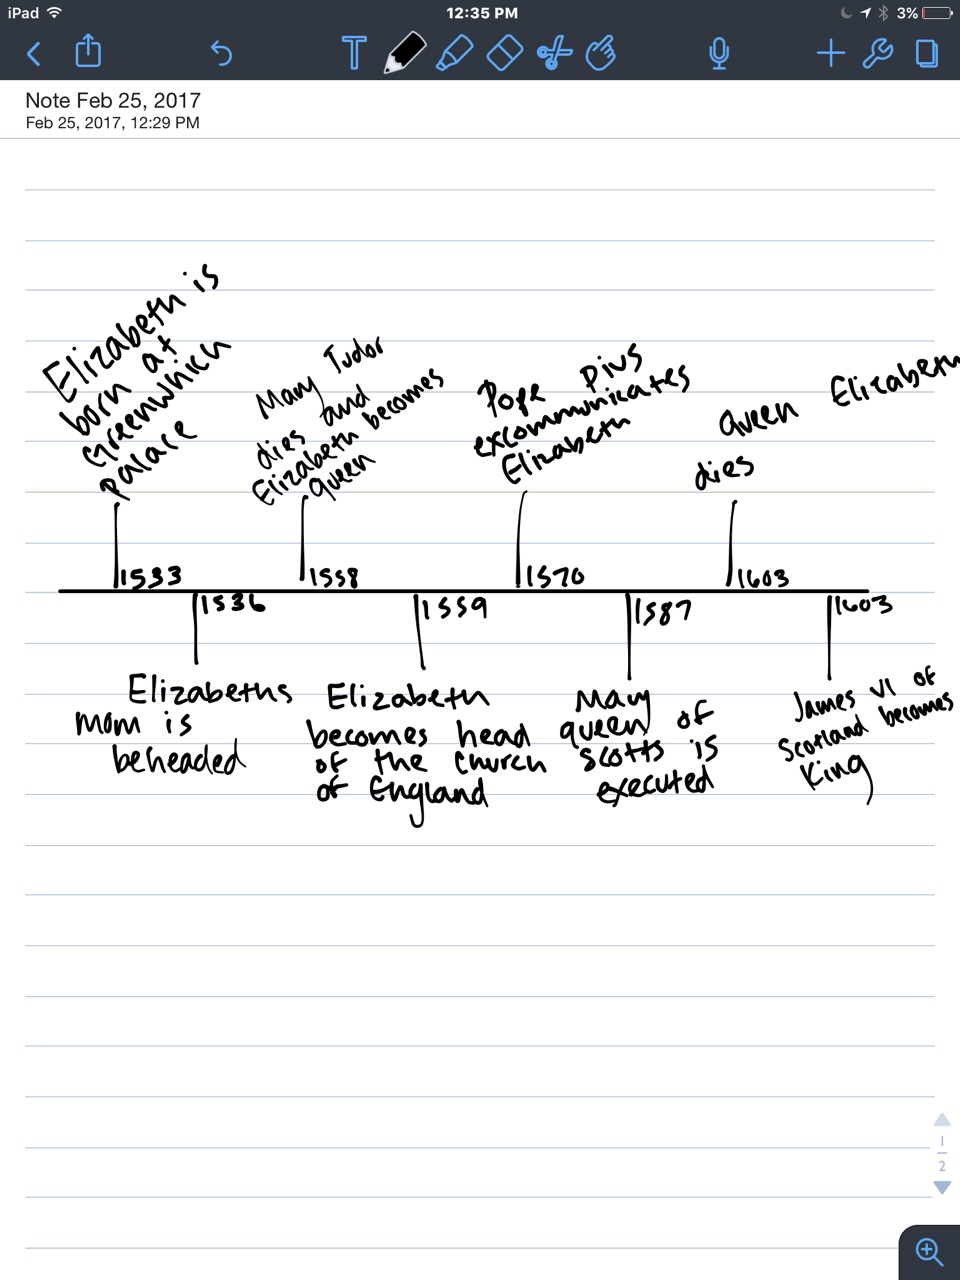 iPad
12:35 PM
3%
T
Note Feb 25, 2017
Feb 25, 2017, 12:29 PM
Elizabeth is
born at
Greenwhich
palace
1533
Mary Tudor
dies and
Elizabeth becomes
queen
1558
Pope Pius
excommunicates
Elizabeth
1570
Queen Elizabeth
dies
1603
1536
Elizabeths
mom is
beheaded
1559
Elizabeth
becomes head
of the church
of England
1587
Mary
queen of
Scotts is
executed
1603
James VI of
Scotland becomes
King
1
2